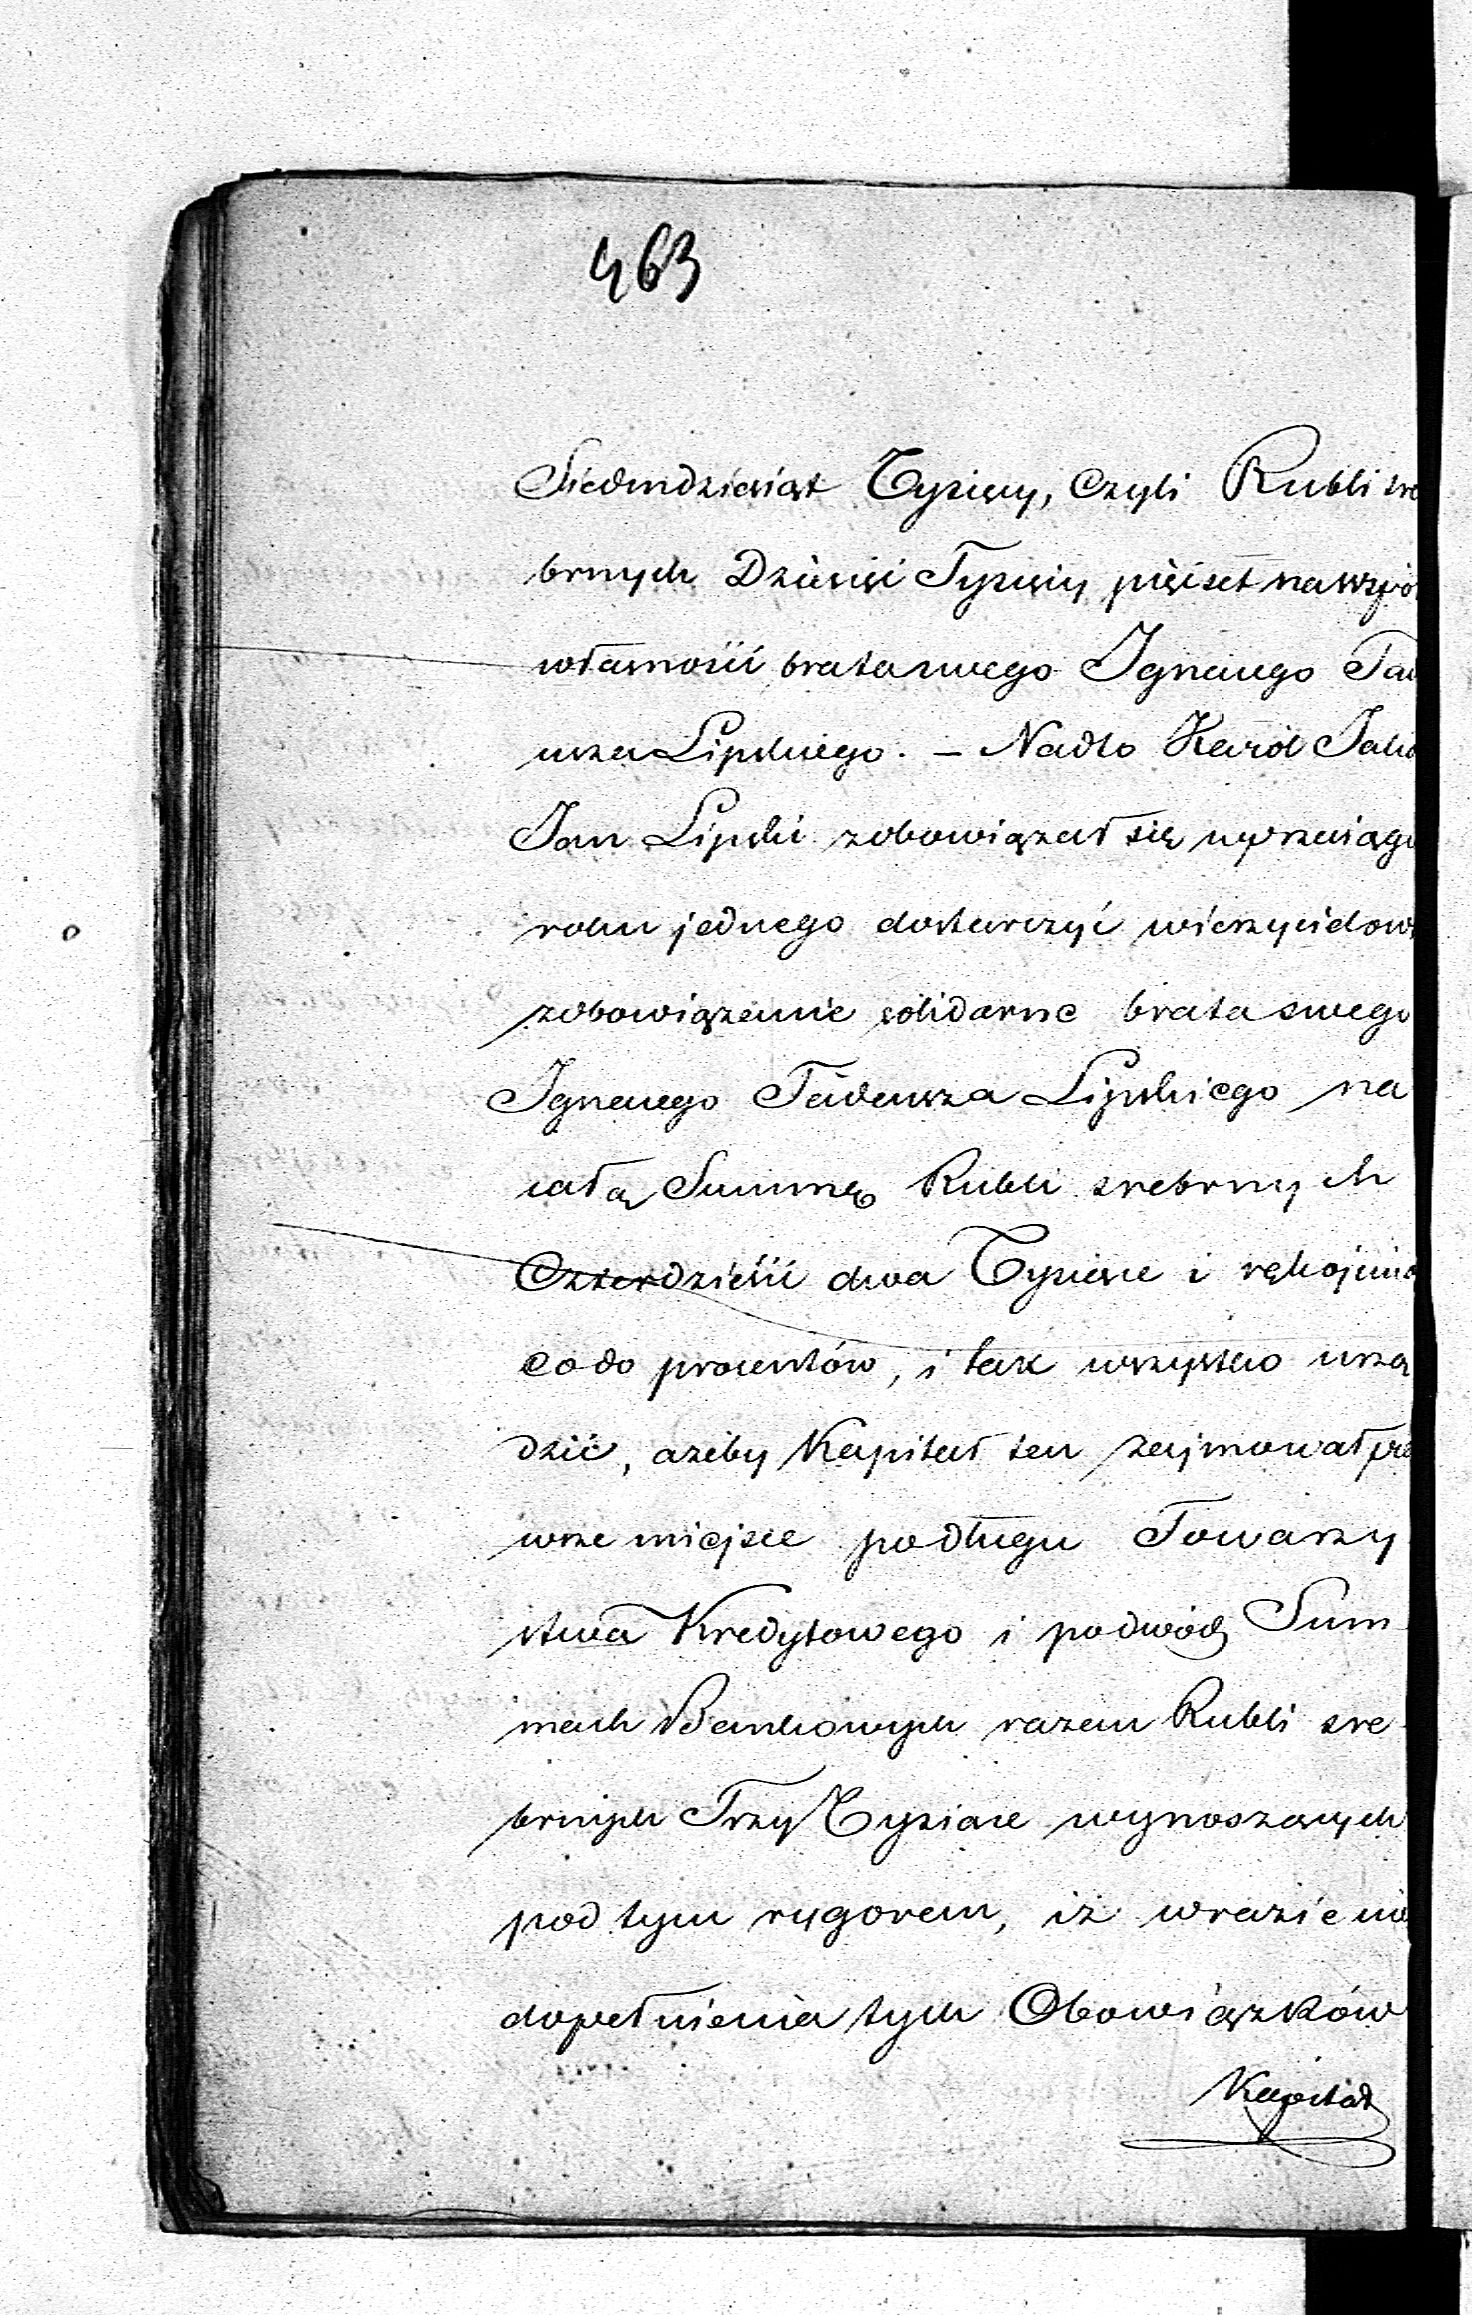 463
Siedmdziesiąt Tysięcy, Czyli Rubli sre
brnych Dziesięć Tysięcy pięćset na współ
własność brata swego Ignacego Tad
eusza Lipskiego. – Nadto Karól
Jan Lipski zobowiązał się w przeciągu
roku jednego dostarczyć wierzycielow
zobowiązanie solidarne brata swego
Ignacego Tadeusza Lipskiego na
całą Summę Rubli srebrnych
Czterdzieści dwa Tysiące i rękojmią
co do procentów, i tak wszystko urzą
dzić, ażeby Kapitał ten zajmował pier
wsze miejsce po długu Towarzy
stwa Kredytowego i po dwóch Sum
mach Bankowych razem Rubli sre
brnych Trzy Tysiące wynoszących
pod tym rygorem, iż w razie nie
dopełnienia tych Obowiązków
Kapitał